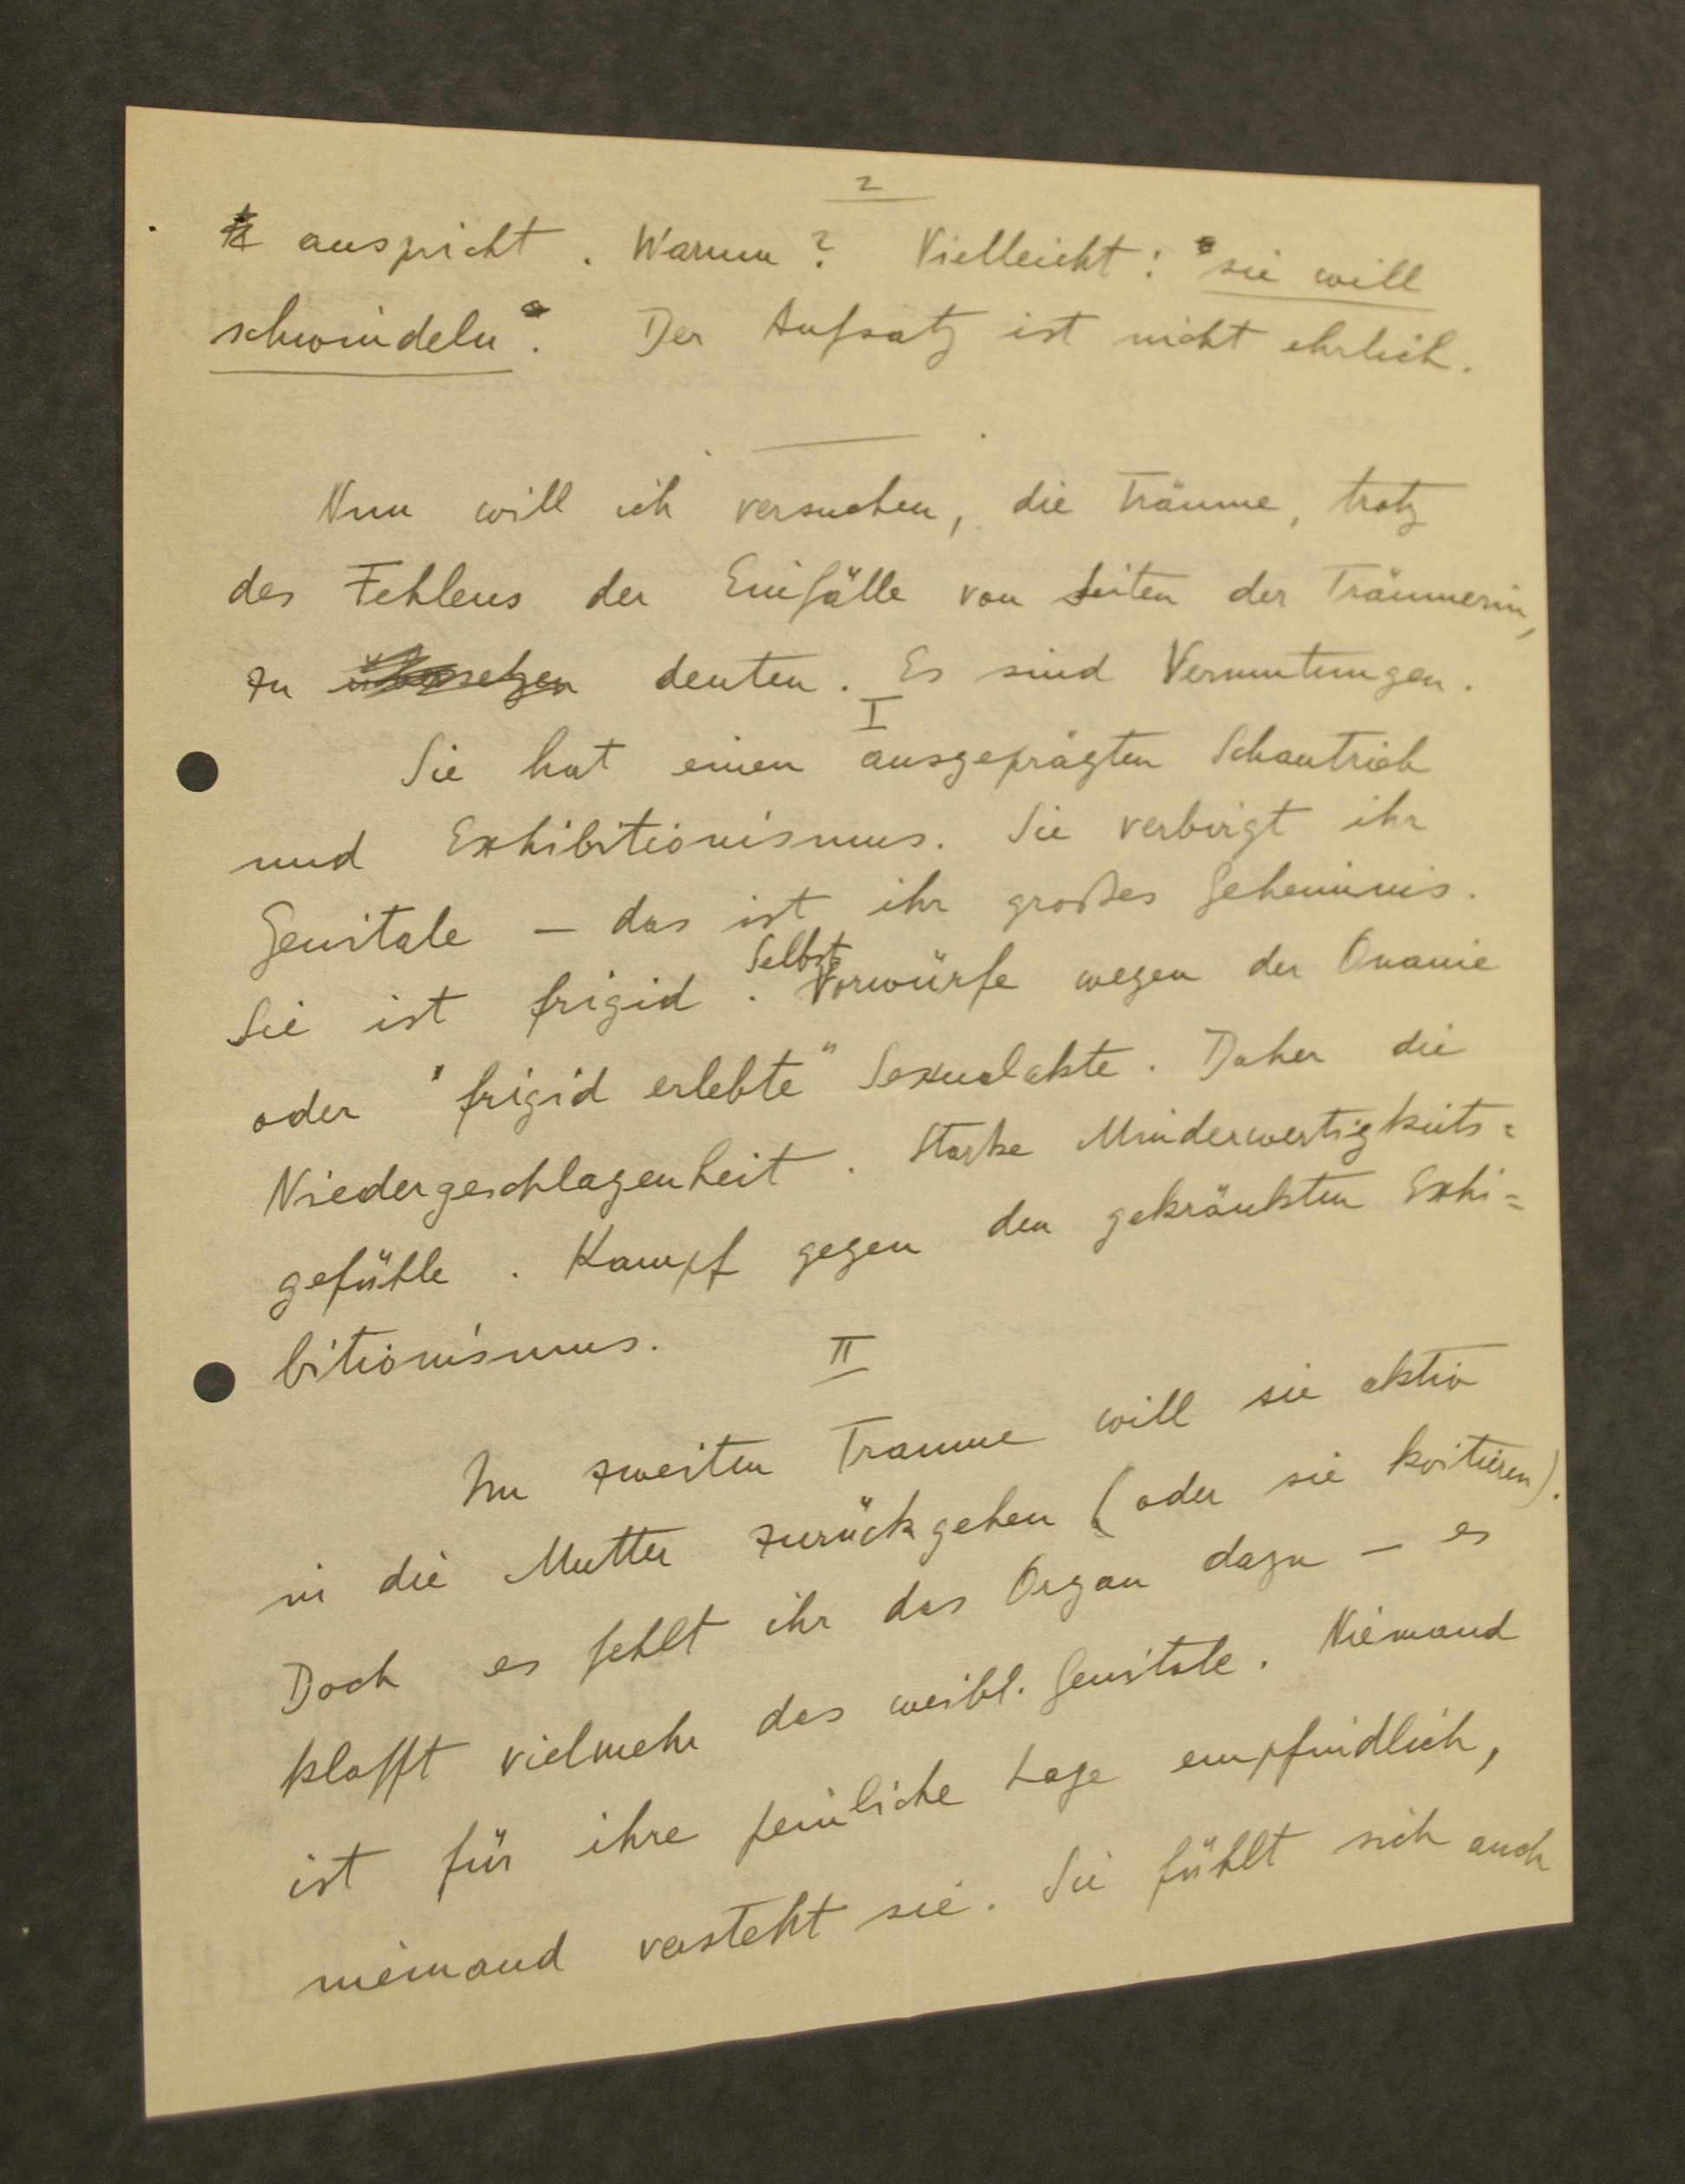 2
auspricht. Warum? Vielleicht: "sie will
schwindeln". Der Aufsatz ist nicht ehrlich.
Nun will ich versuchen, die Träume, trotz
des Fehlens der Einfälle von seiten der Träumerin,
zu übersetzen deuten. Es sind Vermutungen.
I
Sie hat einen ausgeprägten Schautrieb
und Exhibitionismus. Sie verbirgt ihr
Genitale – das ist ihr großes Geheimnis.
Sie ist frigid. Selbstvorwürfe wegen der Onanie
oder "frigid erlebte" Sexualakte. Daher die
Niedergeschlagenheit. Starke Minderwertigkeits=
gefühle. Kampf gegen den gekränkten Exhi=
bitionismus.
II
Im zweiten Traume will sie aktiv
in die Mutter zurückgehen (oder sie koitieren).
Doch es fehlt ihr das Organ dazu – es
klafft vielmehr das weibl. Genitale. Niemand
ist für ihre peinliche Lage empfindlich,
niemand versteht sie. Sie fühlt sich auch